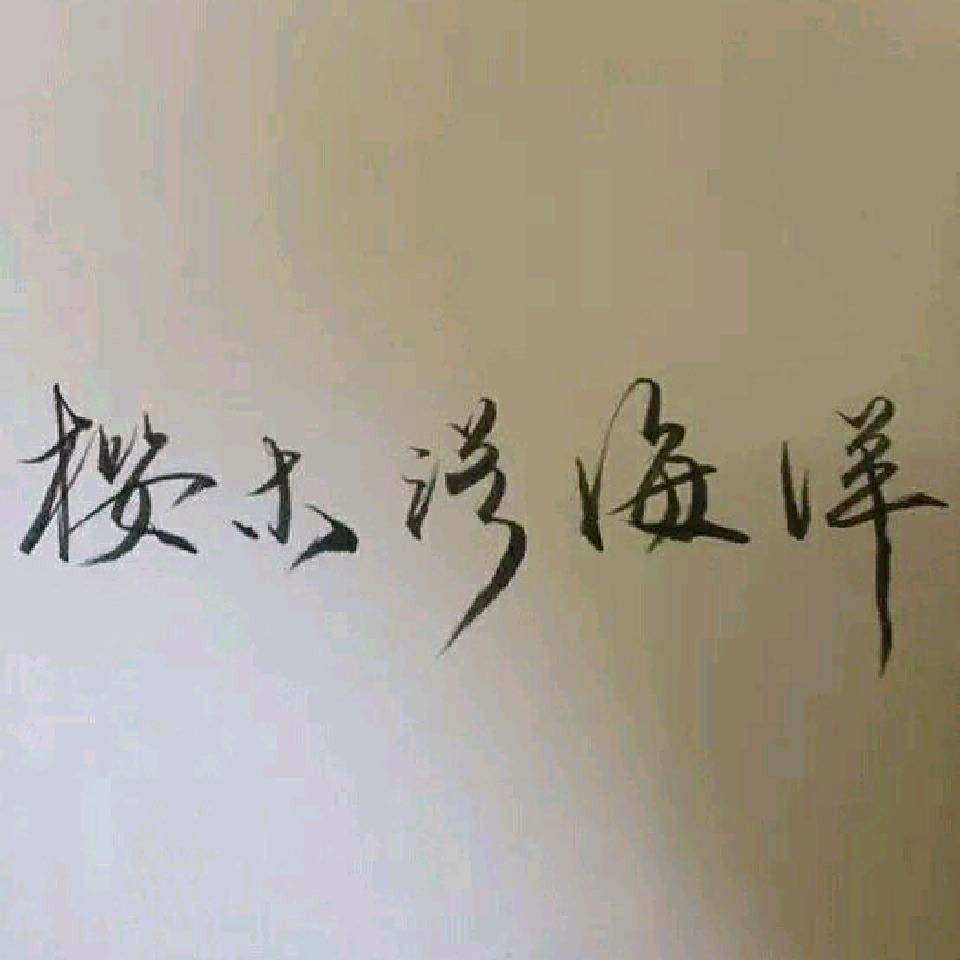 樱木湾海洋